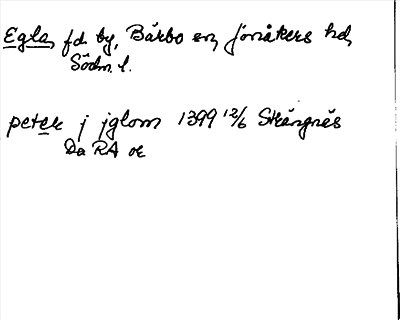 Egla, fd. by, Bärbo sn, Jönåkers hd,
Södm. l.
peter j jglom 1399 12/6 Strängnäs
Da RA or